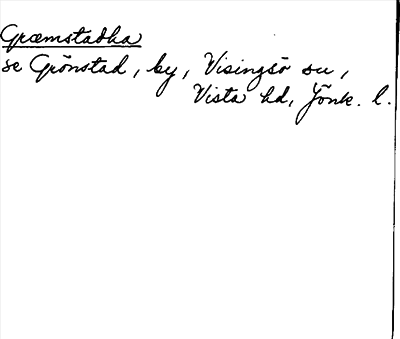 Græmstadha
se Grönstad, by, Visingsö su,
Vista hd, Jönk. l.